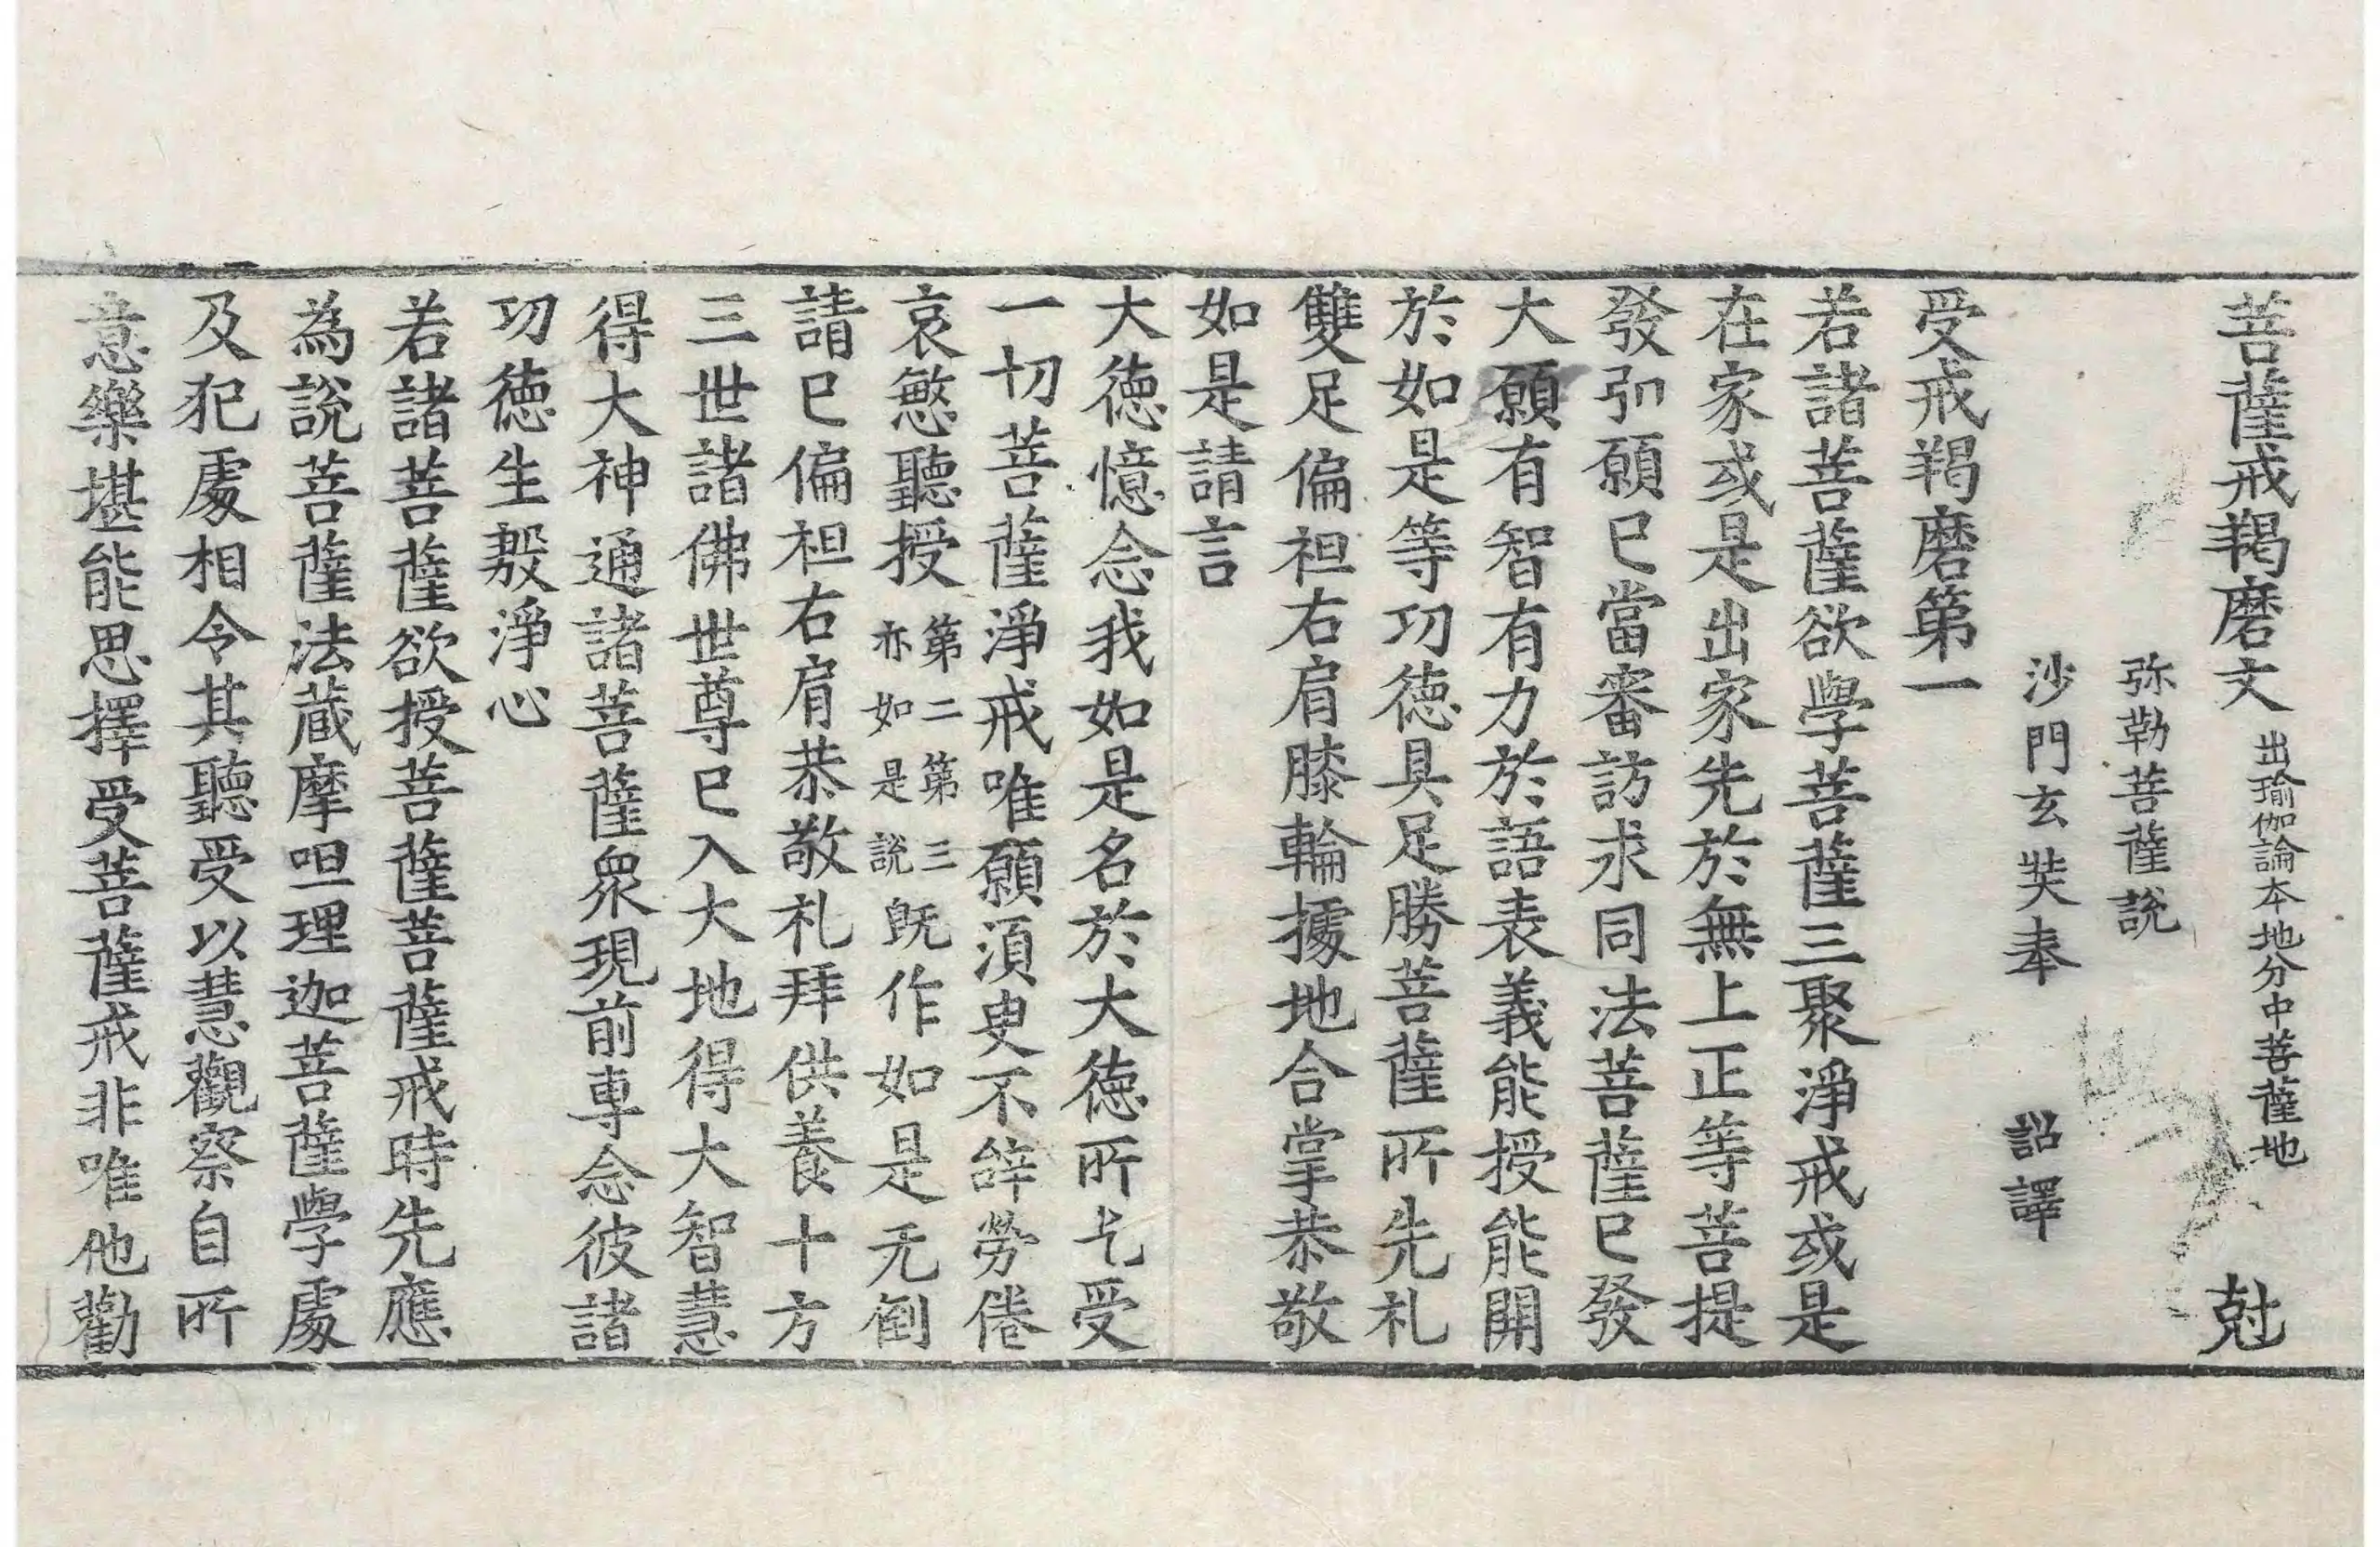 菩薩戒羯磨文 出瑜伽論本地分中菩薩地 尅
弥勒菩薩說
沙門玄奘奉 詔譯
受戒羯磨第一
若諸菩薩欲學菩薩三聚淨戒或是
在家或是出家先於無上正等菩提
發弘願已當審訪求同法菩薩已發
大願有智有力於語表義能授能開
於如是等功德具足勝菩薩所先礼
雙足偏袒右肩膝輪據地合掌恭敬
如是請言
大德憶念我如是名於大德所乞受
一切菩薩淨戒唯願須臾不辝勞倦
哀愍聽授 第二第三
亦如是說 既作如是无倒
請已偏袒右肩恭敬礼拜供養十方
三世諸佛世尊已入大地得大智慧
得大神通諸菩薩衆現前專念彼諸
功德生殷淨心
若諸菩薩欲授菩薩菩薩戒時先應
為說菩薩法蔵摩呾理迦菩薩學處
及犯處相令其聽受以慧觀察自所
意樂堪能思擇受菩薩戒非唯他勸